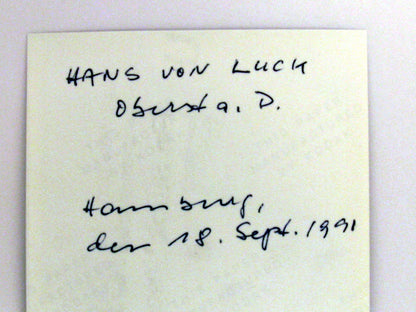 HANS VON LUCK
Oberst a. D.
Hamburg,
den 18. Sept. 1991